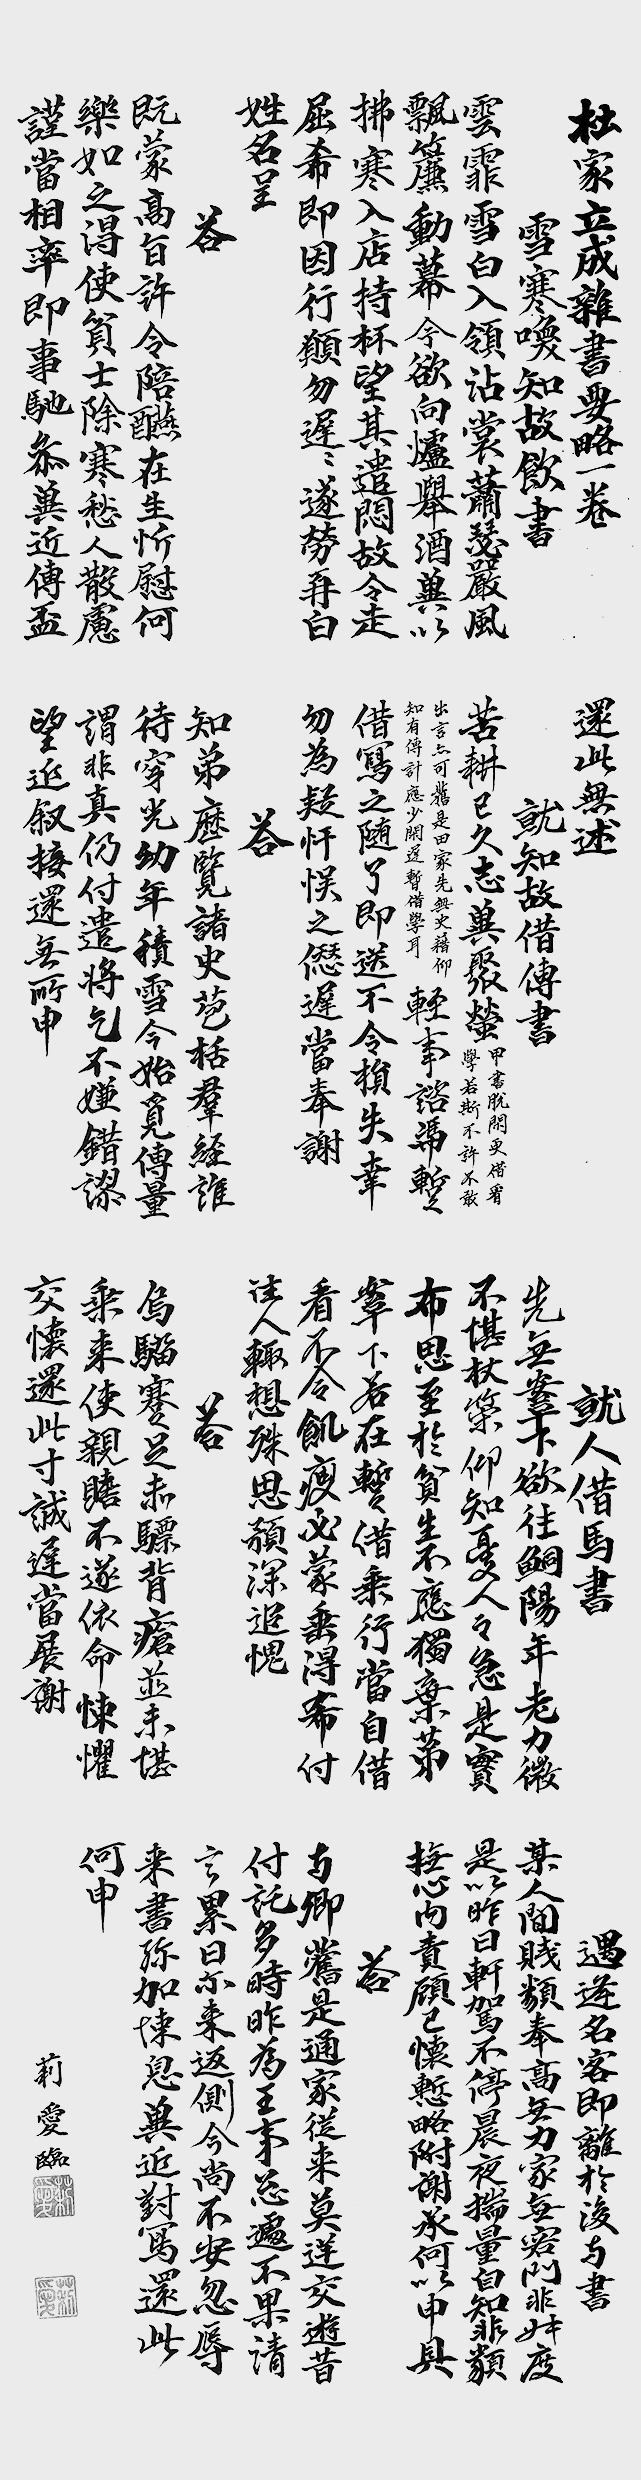 杜家立成雜書要略一卷
雪寒喚知故飲書
雲霏雪白入領沾裳蕭瑟嚴風
飄簾動幕今欲向爐舉酒冀以
拂寒入店持杯望其遣悶故令走
屈希即因行願勿遲〻遂勞再白
姓名呈
荅
既蒙高旨許令陪醼在生忻慰何
樂如之得使貧士除寒愁人散慮
謹當相率即事馳叅冀近傳盃
還此無述
就知故借傳書
苦耕已久志冀聚螢
甲書脫閑更借看
學若斯不許不敢
出言亦可舊是田家先無史藉仰
知有傳計應少閑遲暫借學耳
輕事諮馮暫
借寫之随了即送不令損失幸
勿為疑忓悮之僽遲當奉謝
荅
知弟歷覽諸史苞括羣経誰
待穿光幼年積雪今始覓傳量
謂非真仍付遣將乞不嫌錯謬
望近叙接還無所申
就人借馬書
先無鞌下欲往鮦陽年老力微
不堪杖策仰知憂人之急是實
布思至於貧生不應獨棄苐
羣下若在暫借乘行當自借
看不令飢瘦必蒙垂得希付
徃人輙想殊思頳深追愧
荅
烏騮蹇足赤驃背瘡並未堪
乘来使親瞻不遂依命悚懼
交懷還此寸誠遲當展謝
遇逆名客即離於後与書
某人間賎類奉高無力家無容門非廾度
是以昨日軒駕不停晨夜揣量自知非類
撫心内責顧已懷慙略附謝承何以申具
荅
与卿舊是通家従来莫逆交遊昔
付託多時昨為王事怱遽不果請
言累日亦来返側今尚不安忽辱
来書弥加悚息冀近對寫還此
何申
莉愛臨